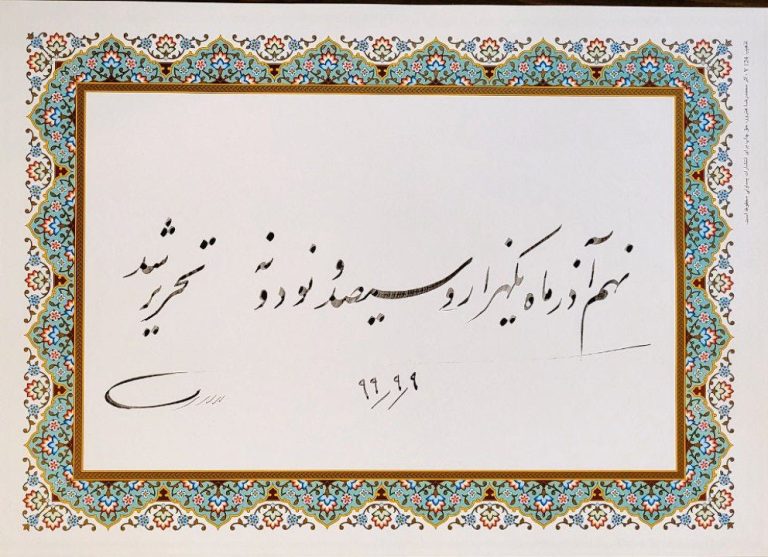 نهم آذر ماه یکهزار و سیصد و نود و نه تحریر شد
۹۹٫۹٫۹